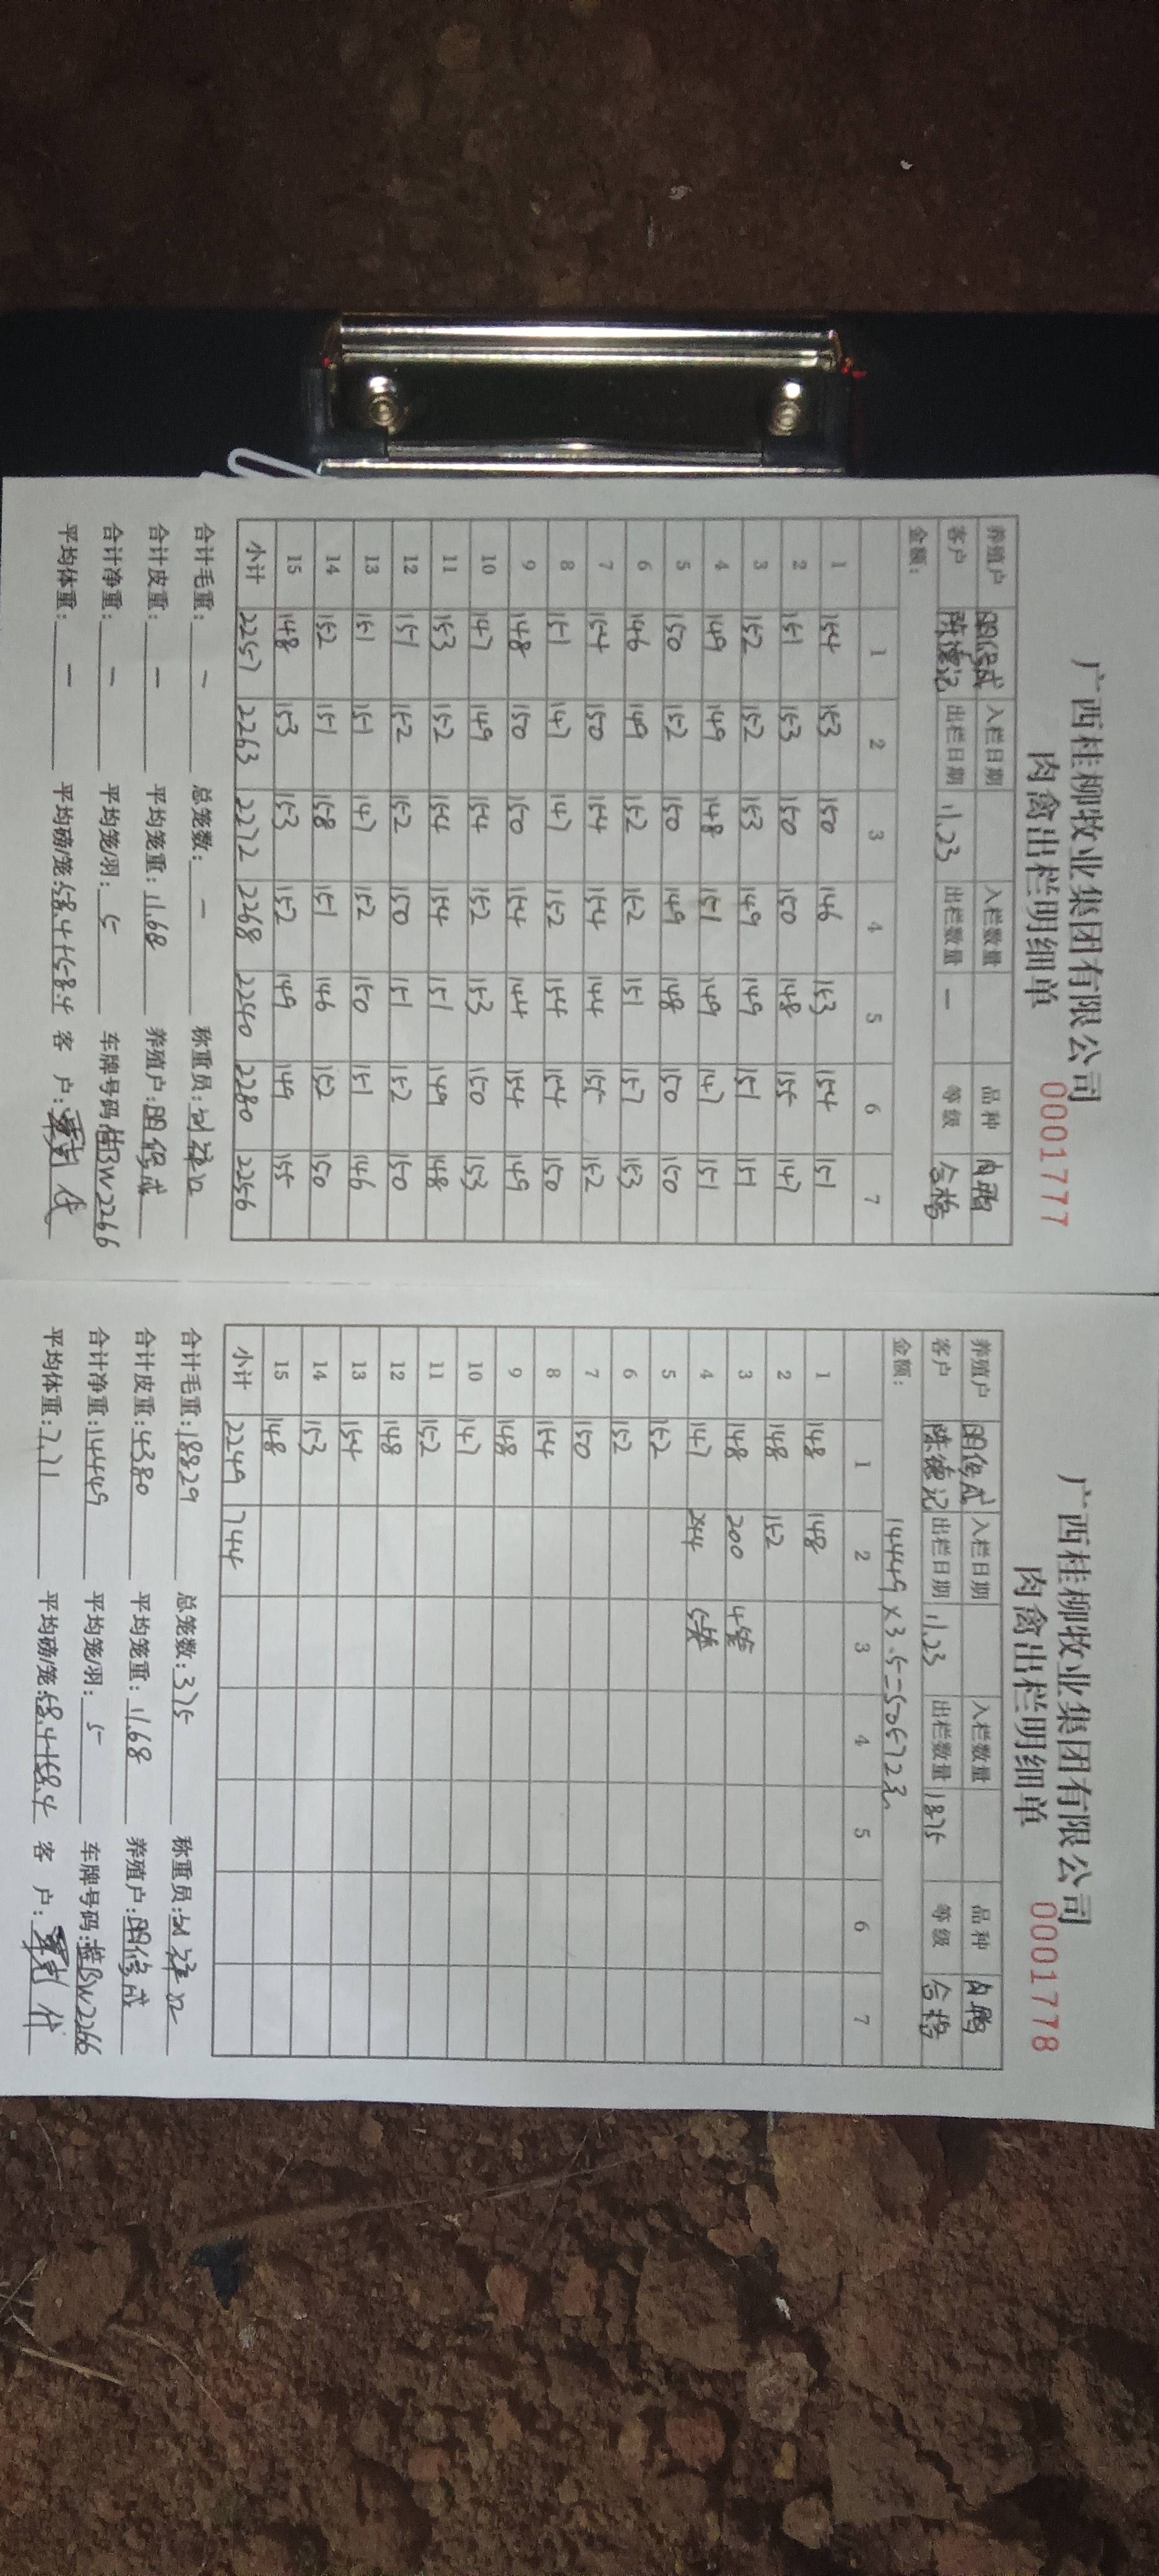 广西桂柳牧业集团有限公司
肉禽出栏明细单 0001777
养殖户 入栏日期 入栏数量 品种 肉鸭
客户 陈德记 出栏日期 11.23 出栏数量 — 等级 合格
金额:
1 2 3 4 5 6 7
1 154 153 150 146 153 154 151
2 151 153 150 150 148 155 147
3 152 152 153 149 149 151 151
4 149 149 148 151 149 147 151
5 150 152 150 149 148 150 150
6 146 149 152 152 151 157 153
7 154 150 154 154 144 155 152
8 151 147 147 152 154 154 150
9 148 150 150 154 144 154 149
10 147 149 154 152 153 150 153
11 153 152 154 154 151 149 148
12 151 152 152 150 151 152 150
13 151 151 147 152 150 151 146
14 152 151 158 151 146 152 150
15 148 153 153 152 149 149 155
小计 2257 2263 2272 2268 2240 2280 2256
合计毛重: — 总笼数: — 称重员:
合计皮重: — 平均笼重: 11.68 养殖户:
合计净重: — 平均笼/羽: 5 车牌号码: BW2266
平均体重: — 平均磅/笼: 58.4+58.4 客 户:
广西桂柳牧业集团有限公司
肉禽出栏明细单 0001778
养殖户 入栏日期 入栏数量 品种 肉鸭
客户 陈德记 出栏日期 11.23 出栏数量 1875 等级 合格
金额: 14449×3.5=50572元
1 2 3 4 5 6 7
1 148 148
2 148 152
3 148 200 4笼
4 147 244
5 152
6 152
7 150
8 144
9 148
10 147
11 152
12 148
13 154
14 153
15 148
小计 2249 744
合计毛重: 18829 总笼数: 375 称重员:
合计皮重: 4380 平均笼重: 11.68 养殖户:
合计净重: 14449 平均笼/羽: 5 车牌号码: BW2266
平均体重: 7.71 平均磅/笼: 58.4+58.4 客 户: